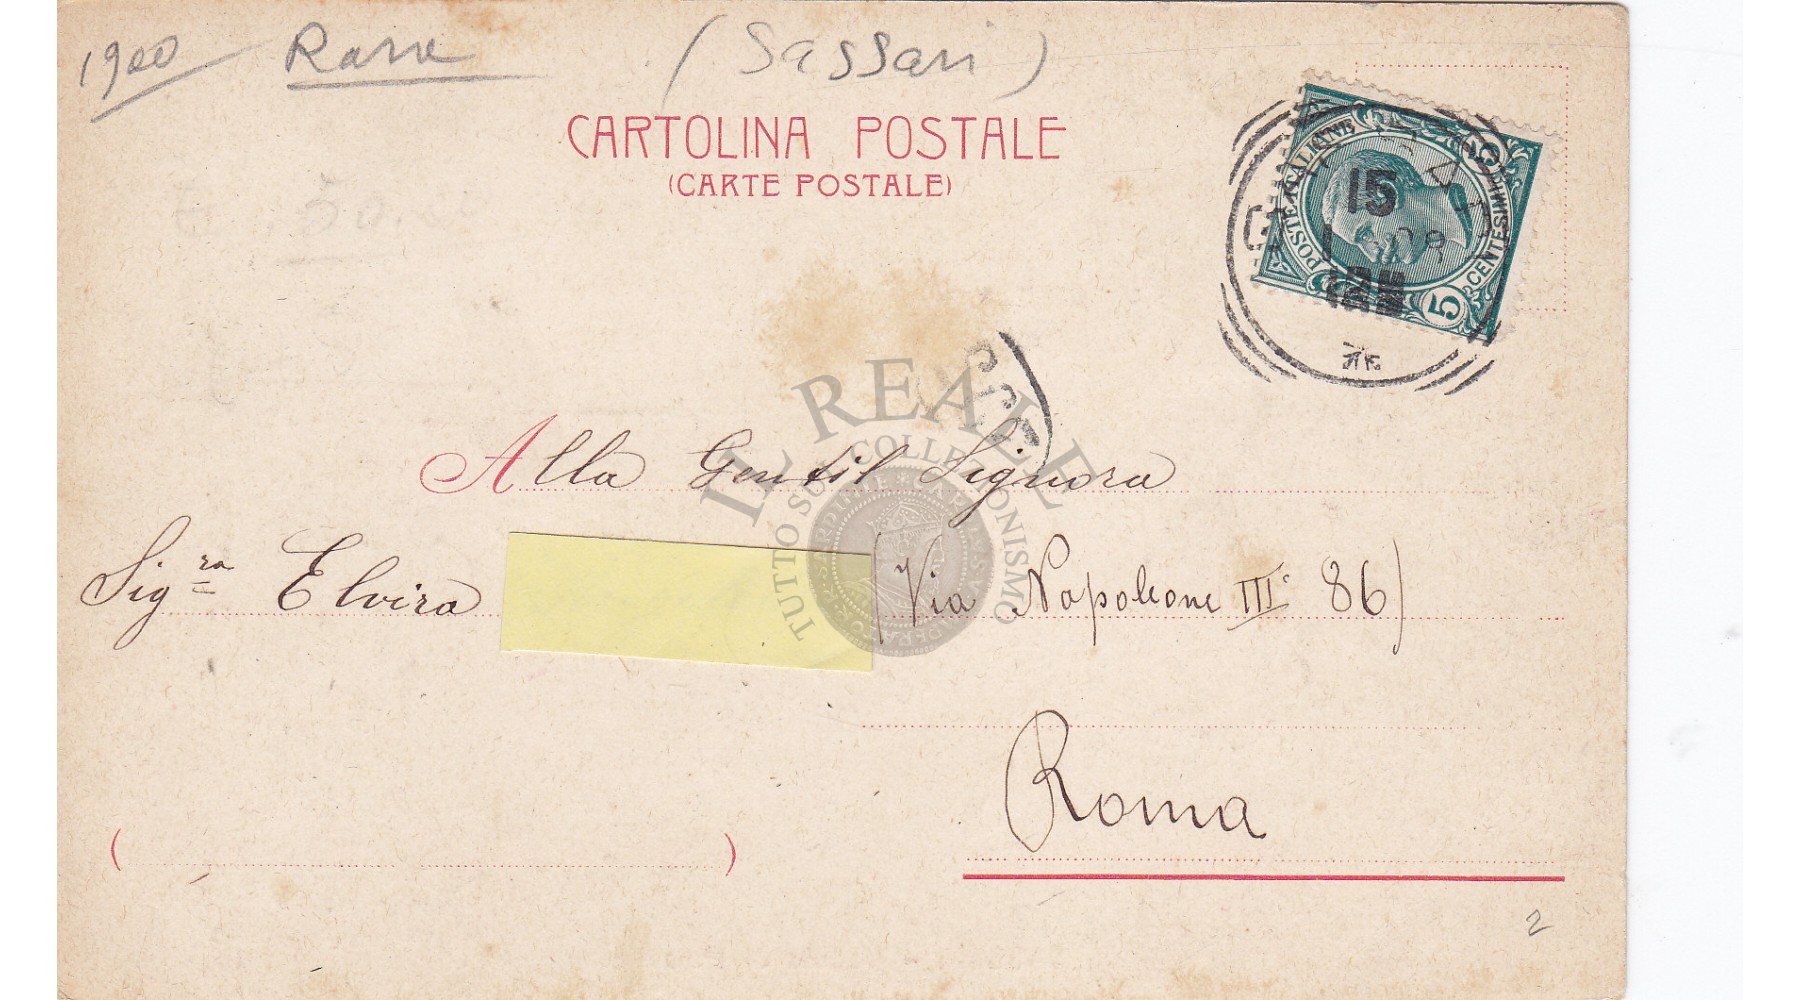 1900 Rara (Sassari)
CARTOLINA POSTALE
(CARTE POSTALE)
POSTE ITALIANE
CENTESIMI 5
15
08
IL REALE
TUTTO SUL COLLEZIONISMO
Alla Gentil Signora
Sig.ra Elvira (Via Napoleone III° 86)
Roma
2